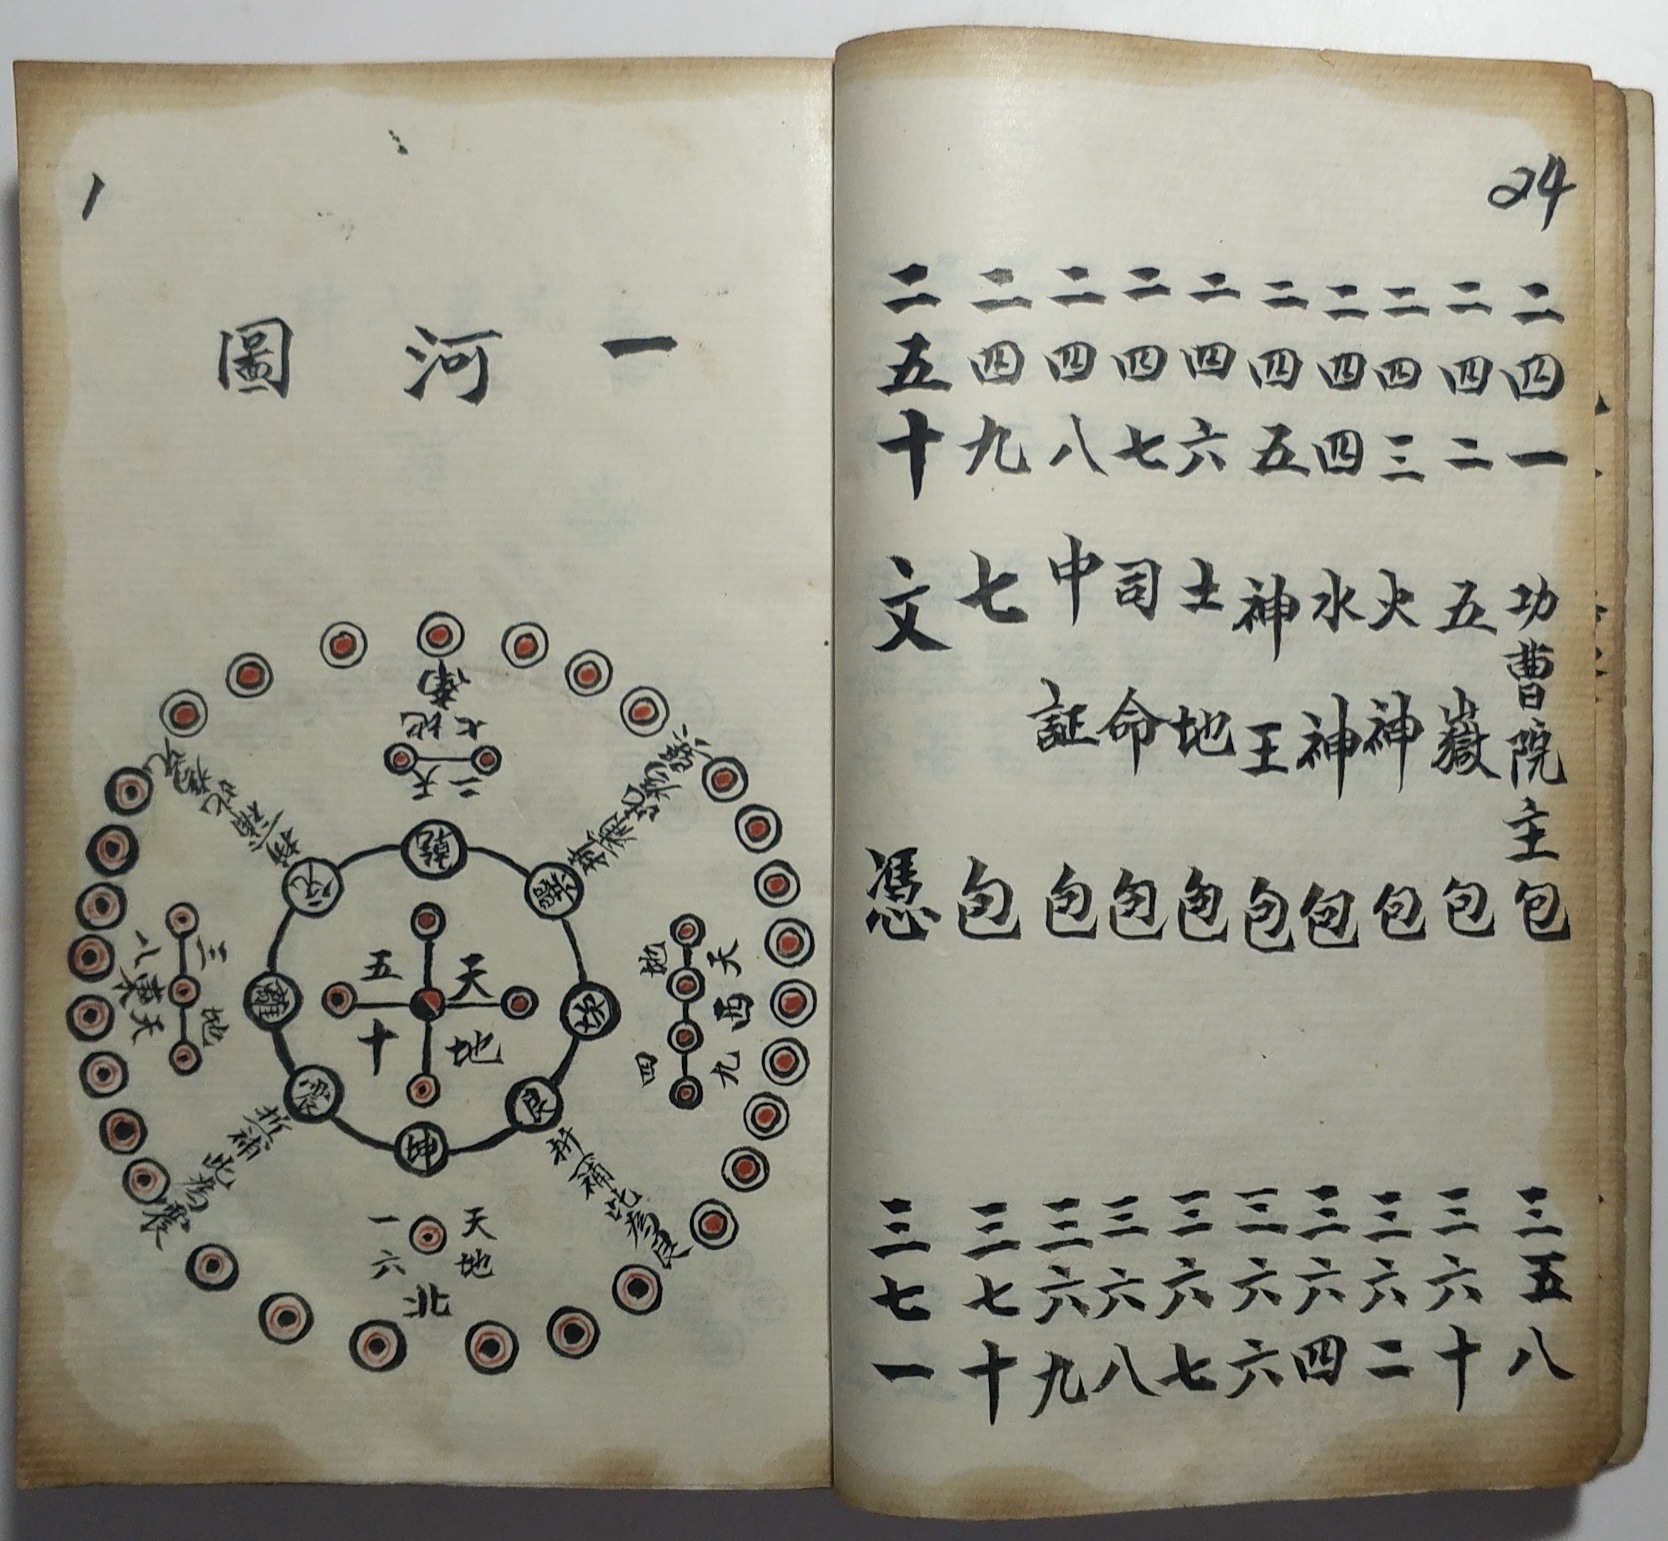 24
二四一 功曹院主包 三五八
二四二 五嶽包 三六十
二四三 火神包 三六二
二四四 水神包 三六四
二四五 神王包 三六六
二四六 土地包 三六七
二四七 司命包 三六八
二四八 中証包 三六九
二四九 七包 三七十
二五十 文憑 三七一
1
一河圖
南
地七
天二
乾
兌
巽
離
坎
震
艮
坤
天五
地十
天三
地八
東
天九
地四
西
折補此為兌
折補此為巽
折補此為震
折補此為艮
天一
地六
北